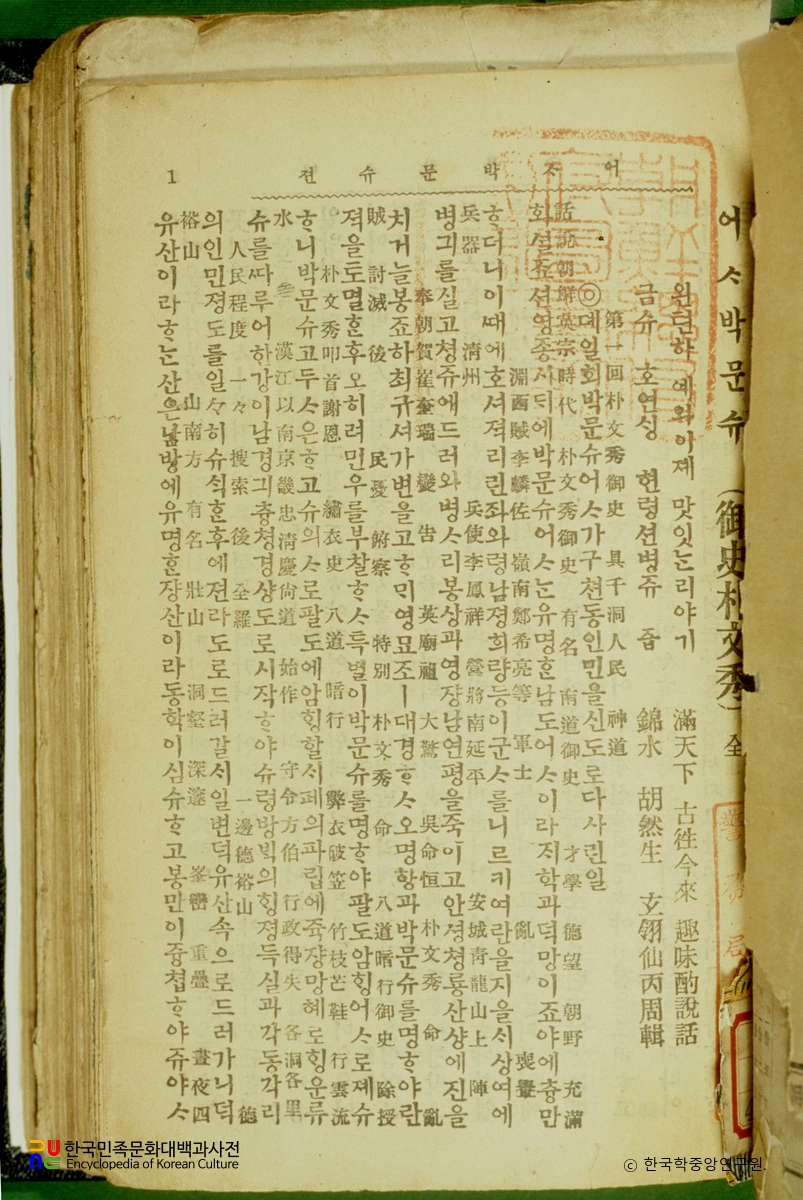 어ᄉ박문슈젼 1
어ᄉ박문슈 (御史朴文秀) 全
왼텬하 예와이졔 맛잇ᄂᆞᆫ리야기 滿天下 古往今來 趣味酌說話
금슈 호연싱 현령션병쥬 즙 錦水 胡然生 玄翎仙丙周輯
第一回朴文秀御史 具千洞人民 神道
◎뎨일회박문슈어ᄉ가구쳔동인민을신도로다사린일
話說朝鮮英宗時代 朴文秀御史 有名 南道御史 才學 德望 朝野 充滿
화셜죠션영종시ᄃᆡ에박문슈어ᄉᄂᆞᆫ유명ᄒᆞᆫ남도어ᄉ이라ᄌᆡ학과덕망이죠야에츙만
湖西賊李麟佐 嶺南鄭希亮等 軍士 亂 喪轝
ᄒᆞ더니이ᄯᅢ에호셔젹리린좌와령남졍희량등이군ᄉ를니르키여란을지을ᄉᆡ상여에
兵器 淸州 兵使李鳳祥 營將南延平 安城靑龍山上 陣
병긔를실고쳥쥬에드러와병ᄉ리봉상과영쟝남연평을죽이고안셩쳥룡산샹에진을
奉朝賀崔奎瑞 變 告 英廟祖 大驚 吳命恒 朴文秀 命 亂
치거늘봉죠하최규셔가변을고ᄒᆞᄆᆡ영묘조ㅣ대경ᄒᆞᄉ오명항과박문슈를명ᄒᆞ야란
賊 討滅 後 民憂 俯察 特別 朴文秀 命 八道暗行御史 除授
젹을토멸ᄒᆞᆫ후오히려민우를부찰ᄒᆞᄉ특별이박문슈를명ᄒᆞ야팔도암ᄒᆡᆼ어ᄉ로졔슈
朴文秀叩首謝恩 繡衣史 八道 暗行 弊衣破笠 竹枝芒鞋 行雲流
ᄒᆞ니박문슈고두ᄉ은ᄒᆞ고슈의ᄉ로팔도에암ᄒᆡᆼ할ᄉᆡ폐의파립에쥭쟝망혜로ᄒᆡᆼ운류
水 漢江以南京畿忠淸慶尙道 始作 守令方伯 行政得失 各洞各里
슈를ᄯᅡ루어한강이남경긔츙쳥경샹도로시작ᄒᆞ야슈령방ᄇᆡᆨ의ᄒᆡᆼ졍득실과각동각리
人民程度 一々 搜索 後 全羅 一邊德裕山 德
의인민졍도를일々히슈식ᄒᆞᆫ후에젼라도로드러갈ᄉᆡ일변덕유산속으로드러가니덕
裕山 山南方 有名 壯山 洞壑 深邃 峯巒 重疊 晝夜四
유산이라ᄒᆞᄂᆞᆫ산은남방에유명ᄒᆞᆫ쟝산이라동학이심슈ᄒᆞ고봉만이즁쳡ᄒᆞ야쥬야ᄉ
警務局
한국민족문화대백과사전
Encyclopedia of Korean Culture
ⓒ 한국학중앙연구원.